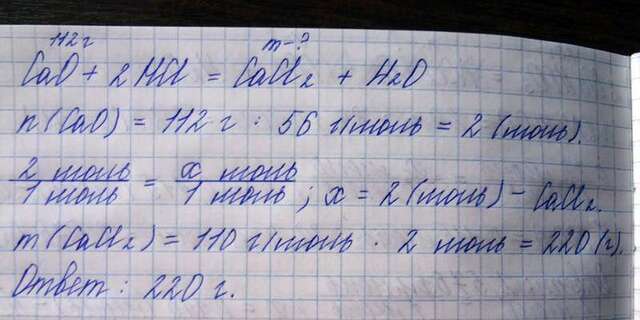 112 г m-?
CaO + 2HCl = CaCl₂ + H₂O
n(CaO) = 112 г : 56 г/моль = 2 (моль).
2 моль / 1 моль = x моль / 1 моль ; x = 2 (моль) - CaCl₂.
m(CaCl₂) = 110 г/моль · 2 моль = 220 (г).
Ответ: 220 г.